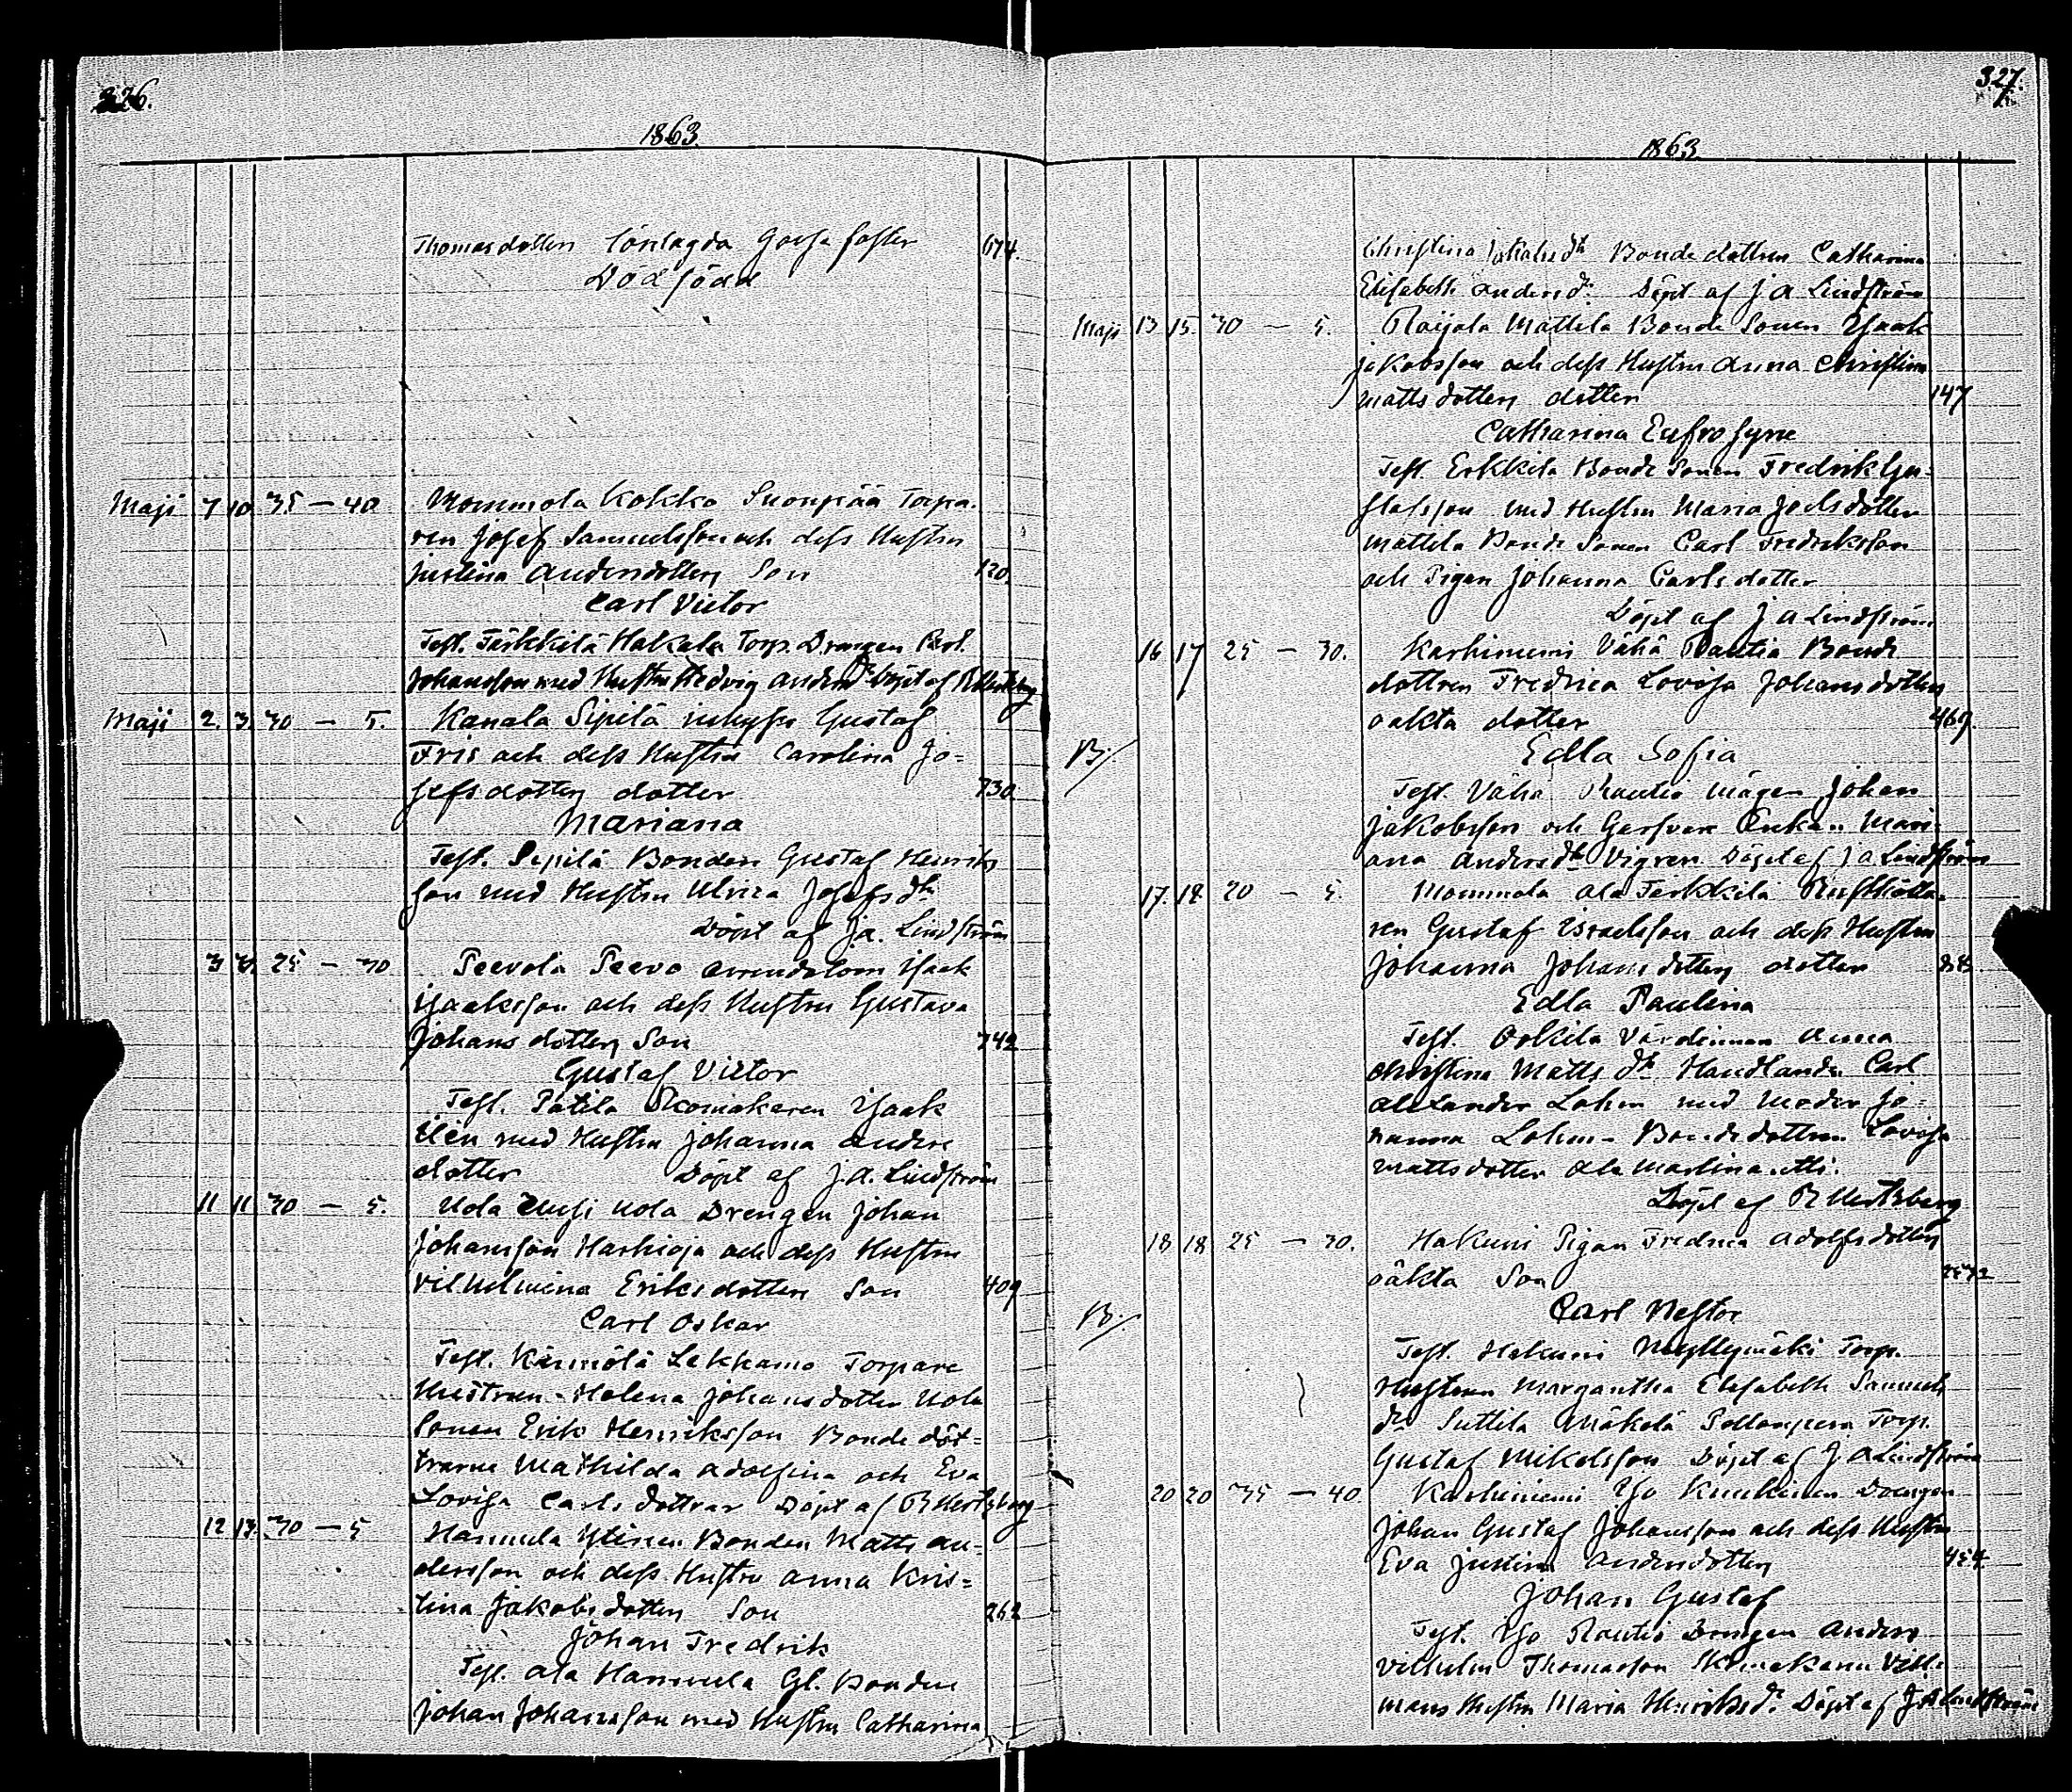 326.
1863.
Thomasdotters förlagda Gosse foster 674.
Dödfödd
Maji 7 10 35 — 40 Mommola Kokko Suonpää Torpa-
ren Josef Samuelsson och dess Hustru
Justina Andersdotters Son 120.
Carl Victor
Test. Järkkilä Hakala Torp. Drengen Carl
Johansson med Hustru Hedvig Andersdr Döpt af R Hertzberg
Maji 2. 3. 30 — 5. Kanala Sipilä inhyses Gustaf
Fris och dess Hustru Carolina Jo-
sefsdotters dotter 730.
Mariana
Test. Sipilä Bonden Gustaf Henriks
son med Hustru Ulrica Josefs dr
Döpt af J.A. Lindström
3 3. 25 — 30 Peevola Peevo Isaak
Isaaksson och dess Hustru Gustava
Johansdotters Son 742
Gustaf Victor
Test. Pätilä Skomakaren Isaak
med Hustru Johanna Anders
dotter Döpt af J.A. Lindström
11 11. 30 — 5. Uola Uola Drengen Johan
Johansson Harhioja och dess Hustru
Vilhelmina Eriksdotters Son 409
Carl Oskar
Test. Lekkamo Torpare
Hustrun Helena Johansdotter Uola
Sonen Erik Henriksson Bonde döt-
trarne Mathilda Adolfina och Eva
Lovisa Carls dottrar Döpt af R Hertzberg
12 13. 30 — 5 Hannula Ylinen Bonden Matts An-
dersson och dess Hustru Anna Kris-
tina Jakobsdotters Son 262
Johan Fredrik
Test. Ala Hannula Gl. Bonden
Johan Johansson med Hustru Catharina
327.
1863
Christina dr Bonde dottren Catharina
Elisabeth Andersdr. Döpt af J A Lindström
Maji 13 15. 30 — 5. Raijala Mattila Bonde Sonen Isaak
Jakobsson och dess Hustru Anna Christina
Mattsdotters dotter 147
Catharina Eufrosyne
Test. Erkkilä Bonde Sonen Fredrik Gu-
stafsson med Hustru Maria Joelsdotter
Mattila Bonde Sonen Carl Fredriksson
och Pigan Johanna Carlsdotter
Döpt af J A Lindström
16 17 25 — 30. Karhiniemi Vähä Rautia Bonde
dottren Fredrica Lovisa Johansdotters
oäkta dotter 469.
B. Edla Sofia
Test. Vähä Rautia mågen Johan
Jakobsson och Enkan Mari-
ana Andersdr Vigren Döpt af J A Lindström
17. 18. 20 — 5. Mommola Ala Järkkilä Rusthålla-
ren Gustaf Israelsson och dess Hustru
Johanna Johansdotters dotter
Edla Paulina
Test. Värdinnan Anna
Christina Matts dr Handlanden Carl
Alexander Lohm med moder Jo-
hanna Lohm - Bondedottren Lovisa
Mattsdotter Ala
Döpt af R Hertzberg
18 18 25 — 30. Hakuni Pigan Fredrica Adolfsdotters
oäkta Son
B. Carl Nestor
Test. Hakuni Myllymäki Torp.
Hustrun Margaretha Elisabeth Samuels
dr Suttila Mäkelä Torp.
Gustaf Mikelsson Döpt af J A Lindström
20 20 35 — 40. Karhiniemi Iso Drengen
Johan Gustaf Johansson och dess Hustru
Eva Justina Andersdotters 454
Johan Gustaf
Test. Iso Rautio Drengen Anders
Vilhelm Thomasson Skomakaren
mans Hustru Maria Henriksdr. Döpt af J A Lindström